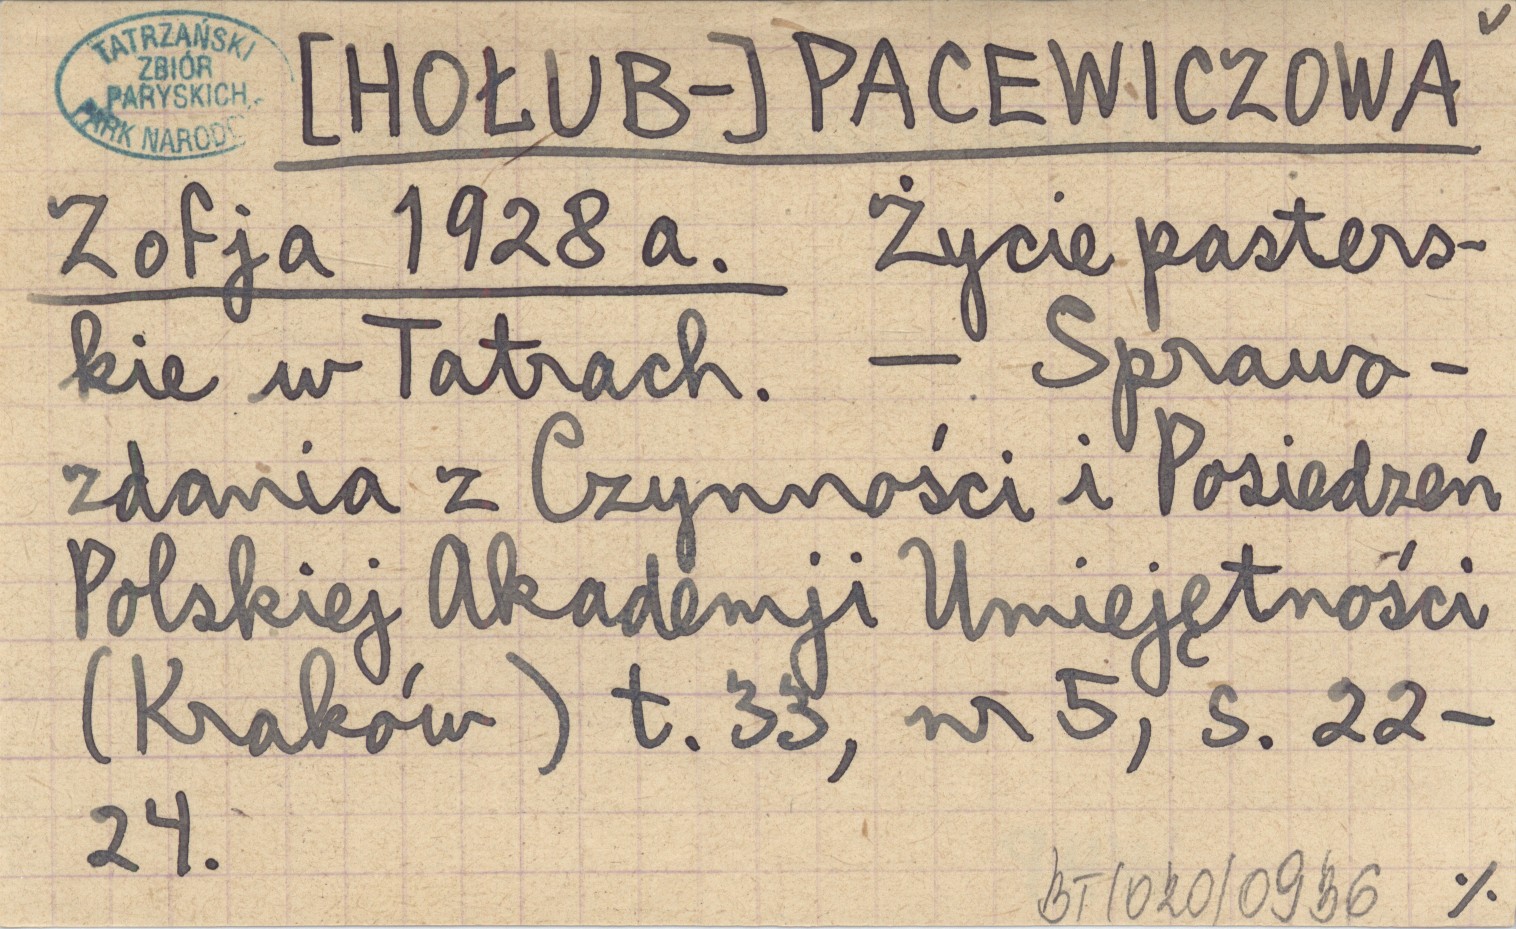 TATRZAŃSKI
ZBIÓR
PARYSKICH
PARK NARODO
[HOŁUB-] PACEWICZOWA
Zofja 1928 a. Życie pasters-
kie w Tatrach. — Sprawo-
zdania z Czynności i Posiedzeń
Polskiej Akademji Umiejętności
(Kraków) t. 33, nr 5, s. 22-
24.
BT/020/0936 ./.